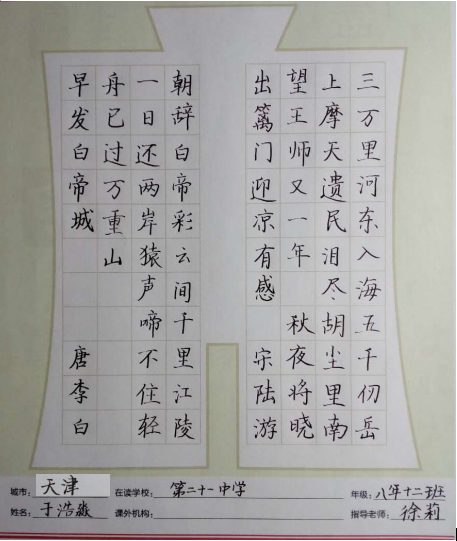 三万里河东入海五千仞岳
上摩天遗民泪尽胡尘里南
望王师又一年 秋夜将晓
出篱门迎凉有感 宋陆游
朝辞白帝彩云间千里江陵
一日还两岸猿声啼不住轻
舟已过万重山
早发白帝城 唐李白
城市：天津 在读学校：第二十一中学 年级：八年十二班
姓名：于浩淼 课外机构： 指导老师：徐莉